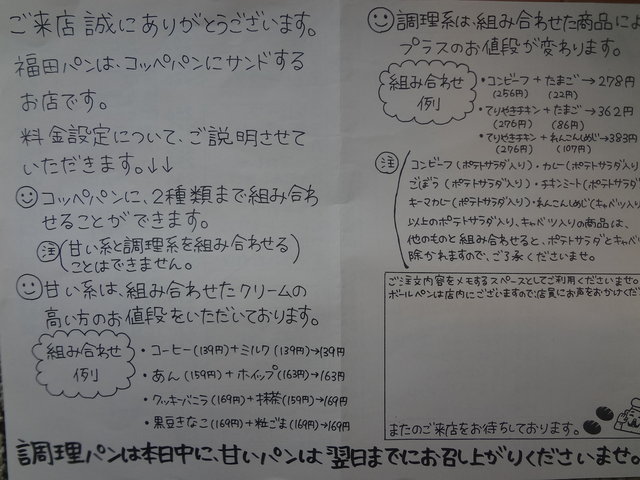 ご来店誠にありがとうございます。
福田パンは、コッペパンにサンドする
お店です。
料金設定について、ご説明させて
いただきます。↓↓
コッペパンに、2種類まで組み合わ
せることができます。
注 (甘い系と調理系を組み合わせる
ことはできません。)
甘い系は、組み合わせたクリームの
高い方のお値段をいただいております。
組み合わせ
例
・コーヒー(139円)+ミルク(139円)→139円
・あん(159円)+ホイップ(163円)→163円
・クッキーバニラ(169円)+抹茶(159円)→169円
・黒豆きなこ(169円)+粒ごま(169円)→169円
調理系は、組み合わせた商品によ
プラスのお値段が変わります。
組み合わせ
例
・コンビーフ+たまご→278円
(256円) (22円)
・てりやきチキン+たまご→362円
(276円) (86円)
・てりやきチキン+れんこんしめじ→383円
(276円) (107円)
注
コンビーフ(ポテトサラダ入り)・カレー(ポテトサラダ入り
ごぼう(ポテトサラダ入り)・チキンミート(ポテトサラダ
キーマカレー(ポテトサラダ入り)・れんこんしめじ(キャベツ入り
以上のポテトサラダ入り、キャベツ入りの商品は、
他のものと組み合わせると、ポテトサラダとキャベ
除かれますので、ご了承くださいませ。
ご注文内容をメモするスペースとしてご利用くださいませ。
ボールペンは店内にございますので、店員にお声をおかけくだ
またのご来店をお待ちしております。
調理パンは本日中に、甘いパンは翌日までにお召し上がりくださいませ。